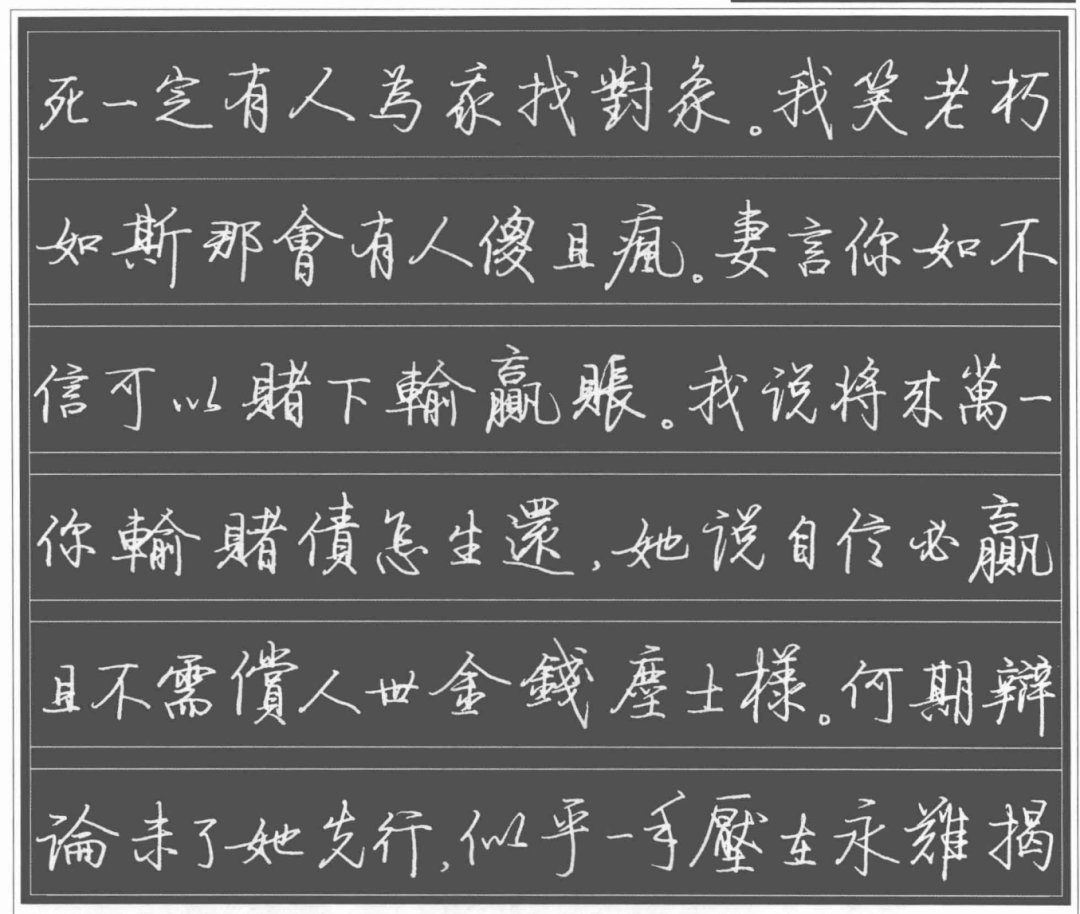 死一定有人為我找對象。我笑老朽
如斯那會有人傻且瘋。妻言你如不
信可以賭下輸贏賬。我说将来萬一
你輸賭債怎生還,她说自信必贏
且不需償人世金錢塵土樣。何期辯
論未了她先行,似乎一手壓在永難揭